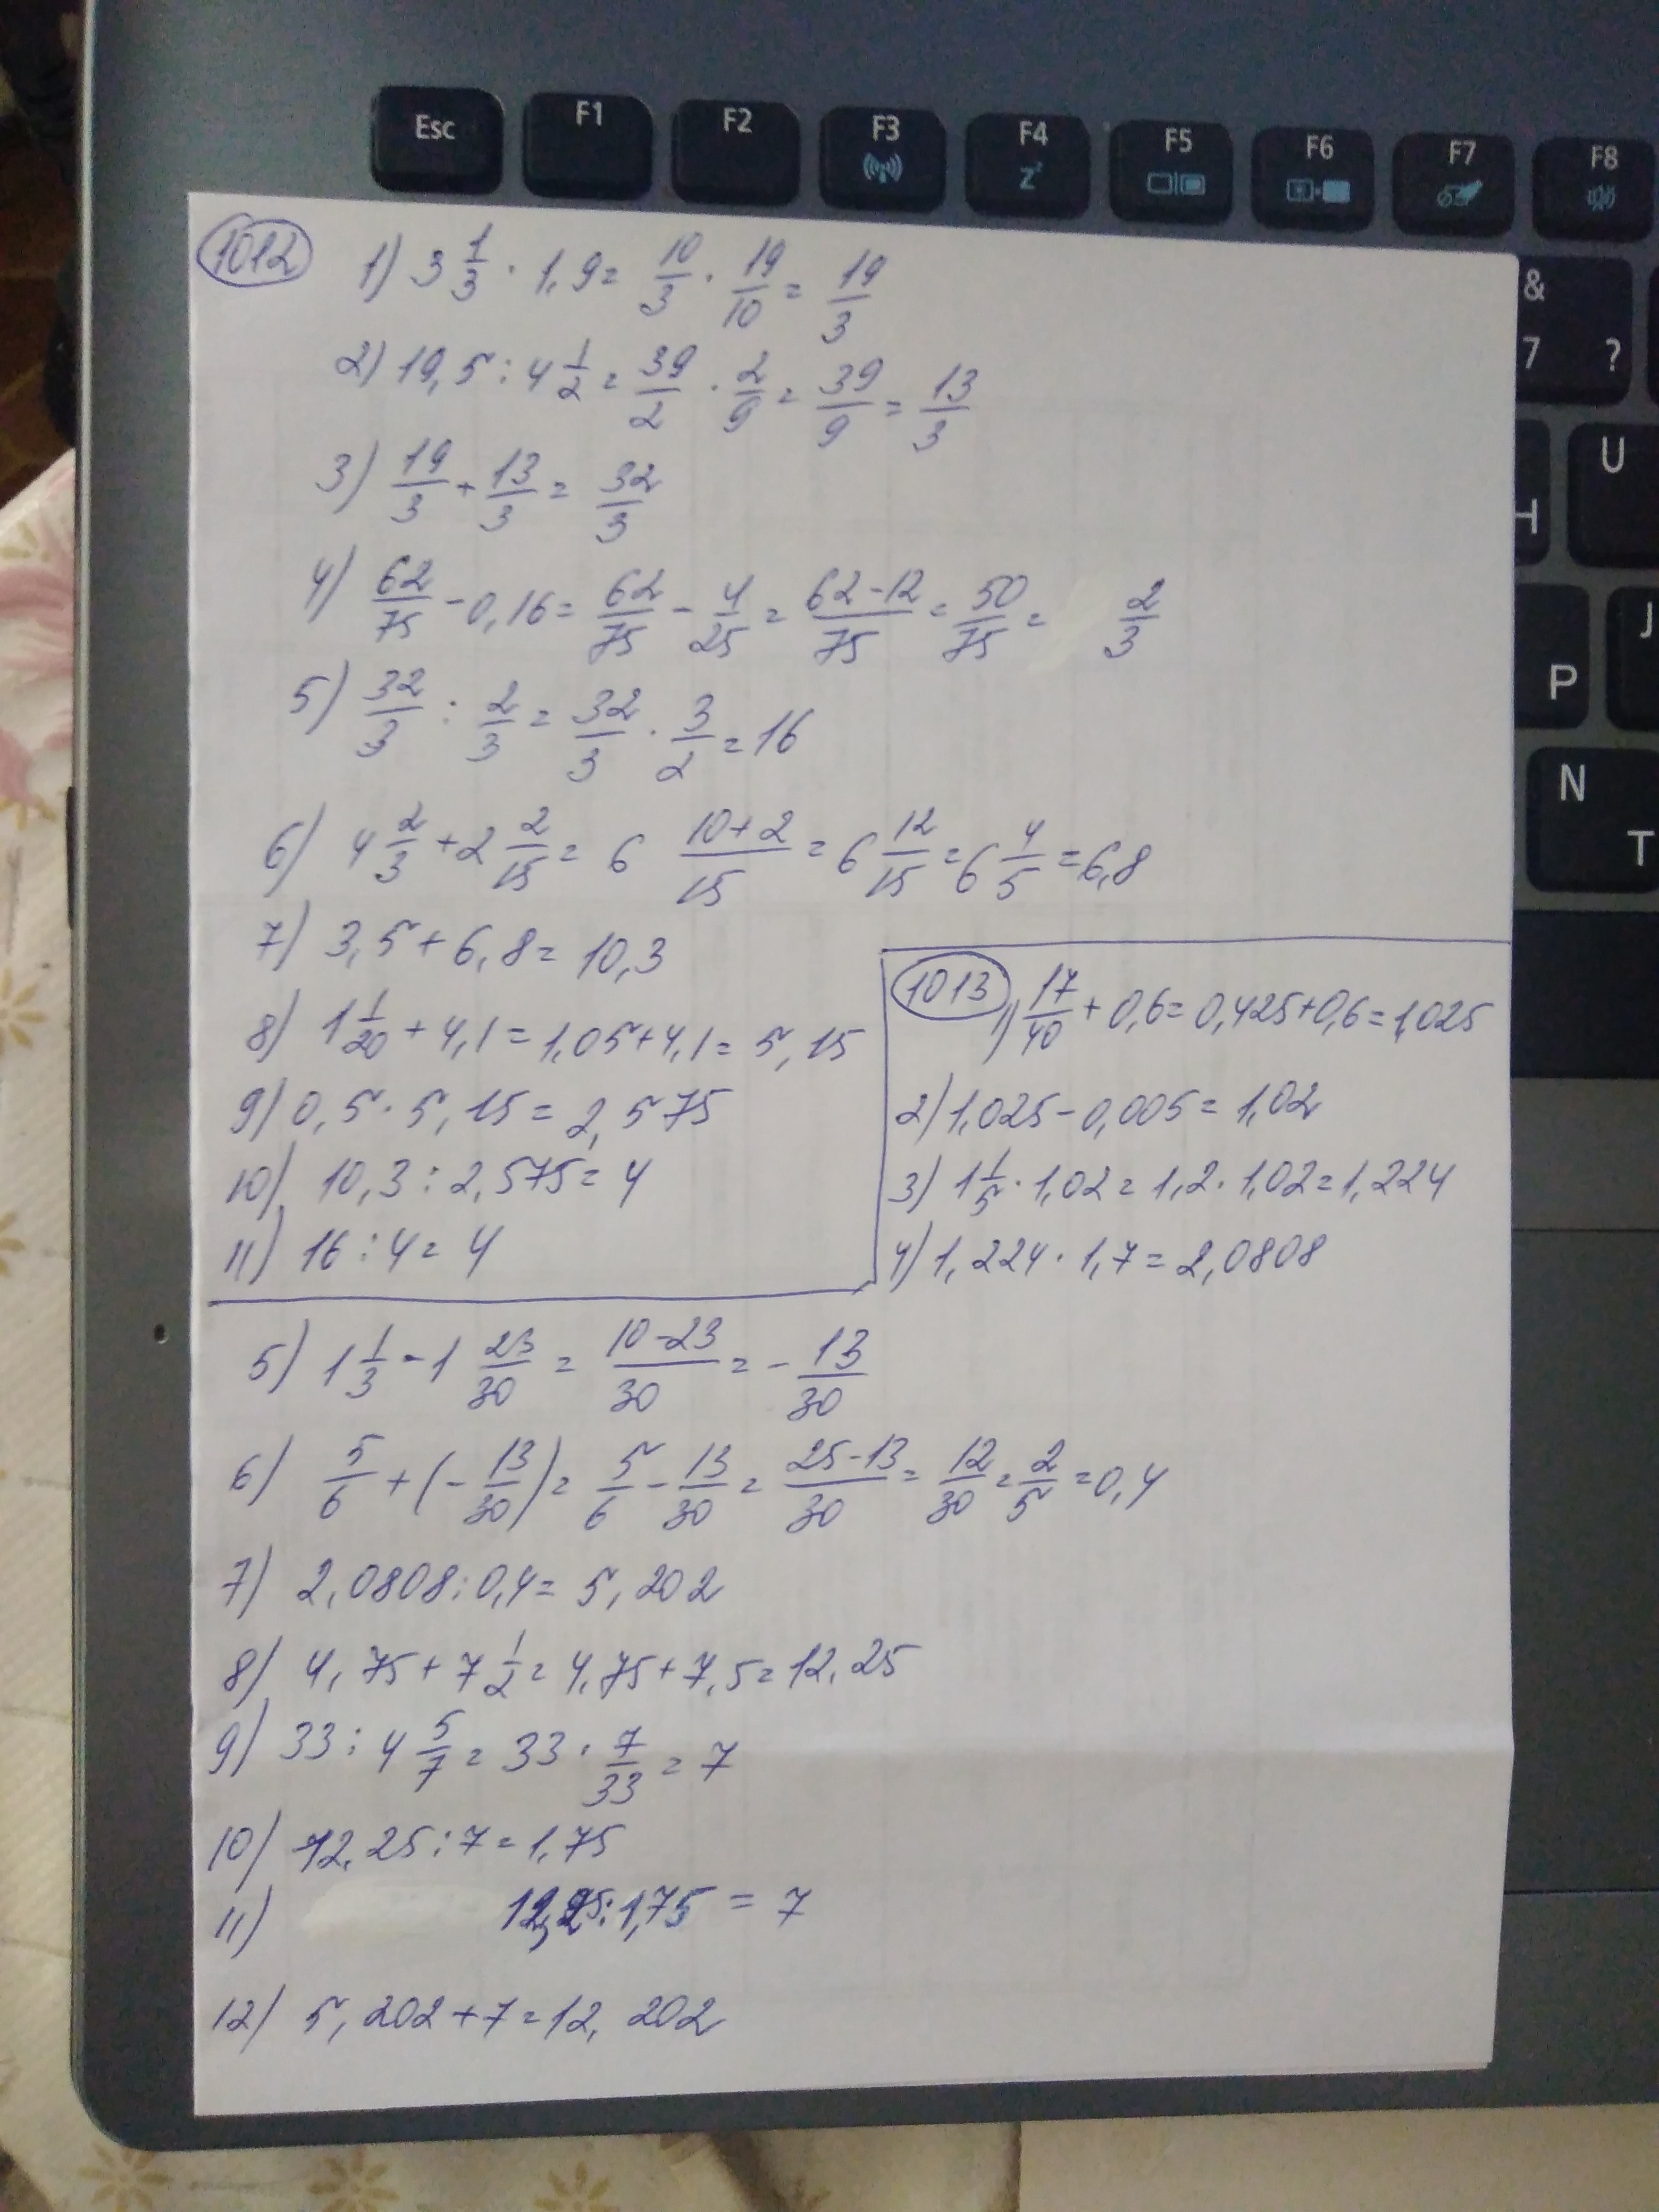 Esc F1 F2 F3 F4 Z F5 F6 F7 F8
&
7 ?
U
H
J
P
N
T
1012 1) 3 1/3 · 1,9 = 10/3 · 19/10 = 19/3
2) 19,5 : 4 1/2 = 39/2 · 2/9 = 39/9 = 13/3
3) 19/3 + 13/3 = 32/3
4) 62/75 - 0,16 = 62/75 - 4/25 = (62-12)/75 = 50/75 = 2/3
5) 32/3 : 2/3 = 32/3 · 3/2 = 16
6) 4 2/3 + 2 2/15 = 6 (10+2)/15 = 6 12/15 = 6 4/5 = 6,8
7) 3,5 + 6,8 = 10,3
8) 1 1/20 + 4,1 = 1,05 + 4,1 = 5,15
9) 0,5 · 5,15 = 2,575
10) 10,3 : 2,575 = 4
11) 16 : 4 = 4
1013 1) 17/40 + 0,6 = 0,425 + 0,6 = 1,025
2) 1,025 - 0,005 = 1,02
3) 1 1/5 · 1,02 = 1,2 · 1,02 = 1,224
4) 1,224 · 1,7 = 2,0808
5) 1 1/3 - 1 23/30 = (10-23)/30 = - 13/30
6) 5/6 + (- 13/30) = 5/6 - 13/30 = (25-13)/30 = 12/30 = 2/5 = 0,4
7) 2,0808 : 0,4 = 5,202
8) 4,75 + 7 1/2 = 4,75 + 7,5 = 12,25
9) 33 : 4 5/7 = 33 · 7/33 = 7
10) 12,25 : 7 = 1,75
11) 12,25 : 1,75 = 7
12) 5,202 + 7 = 12,202